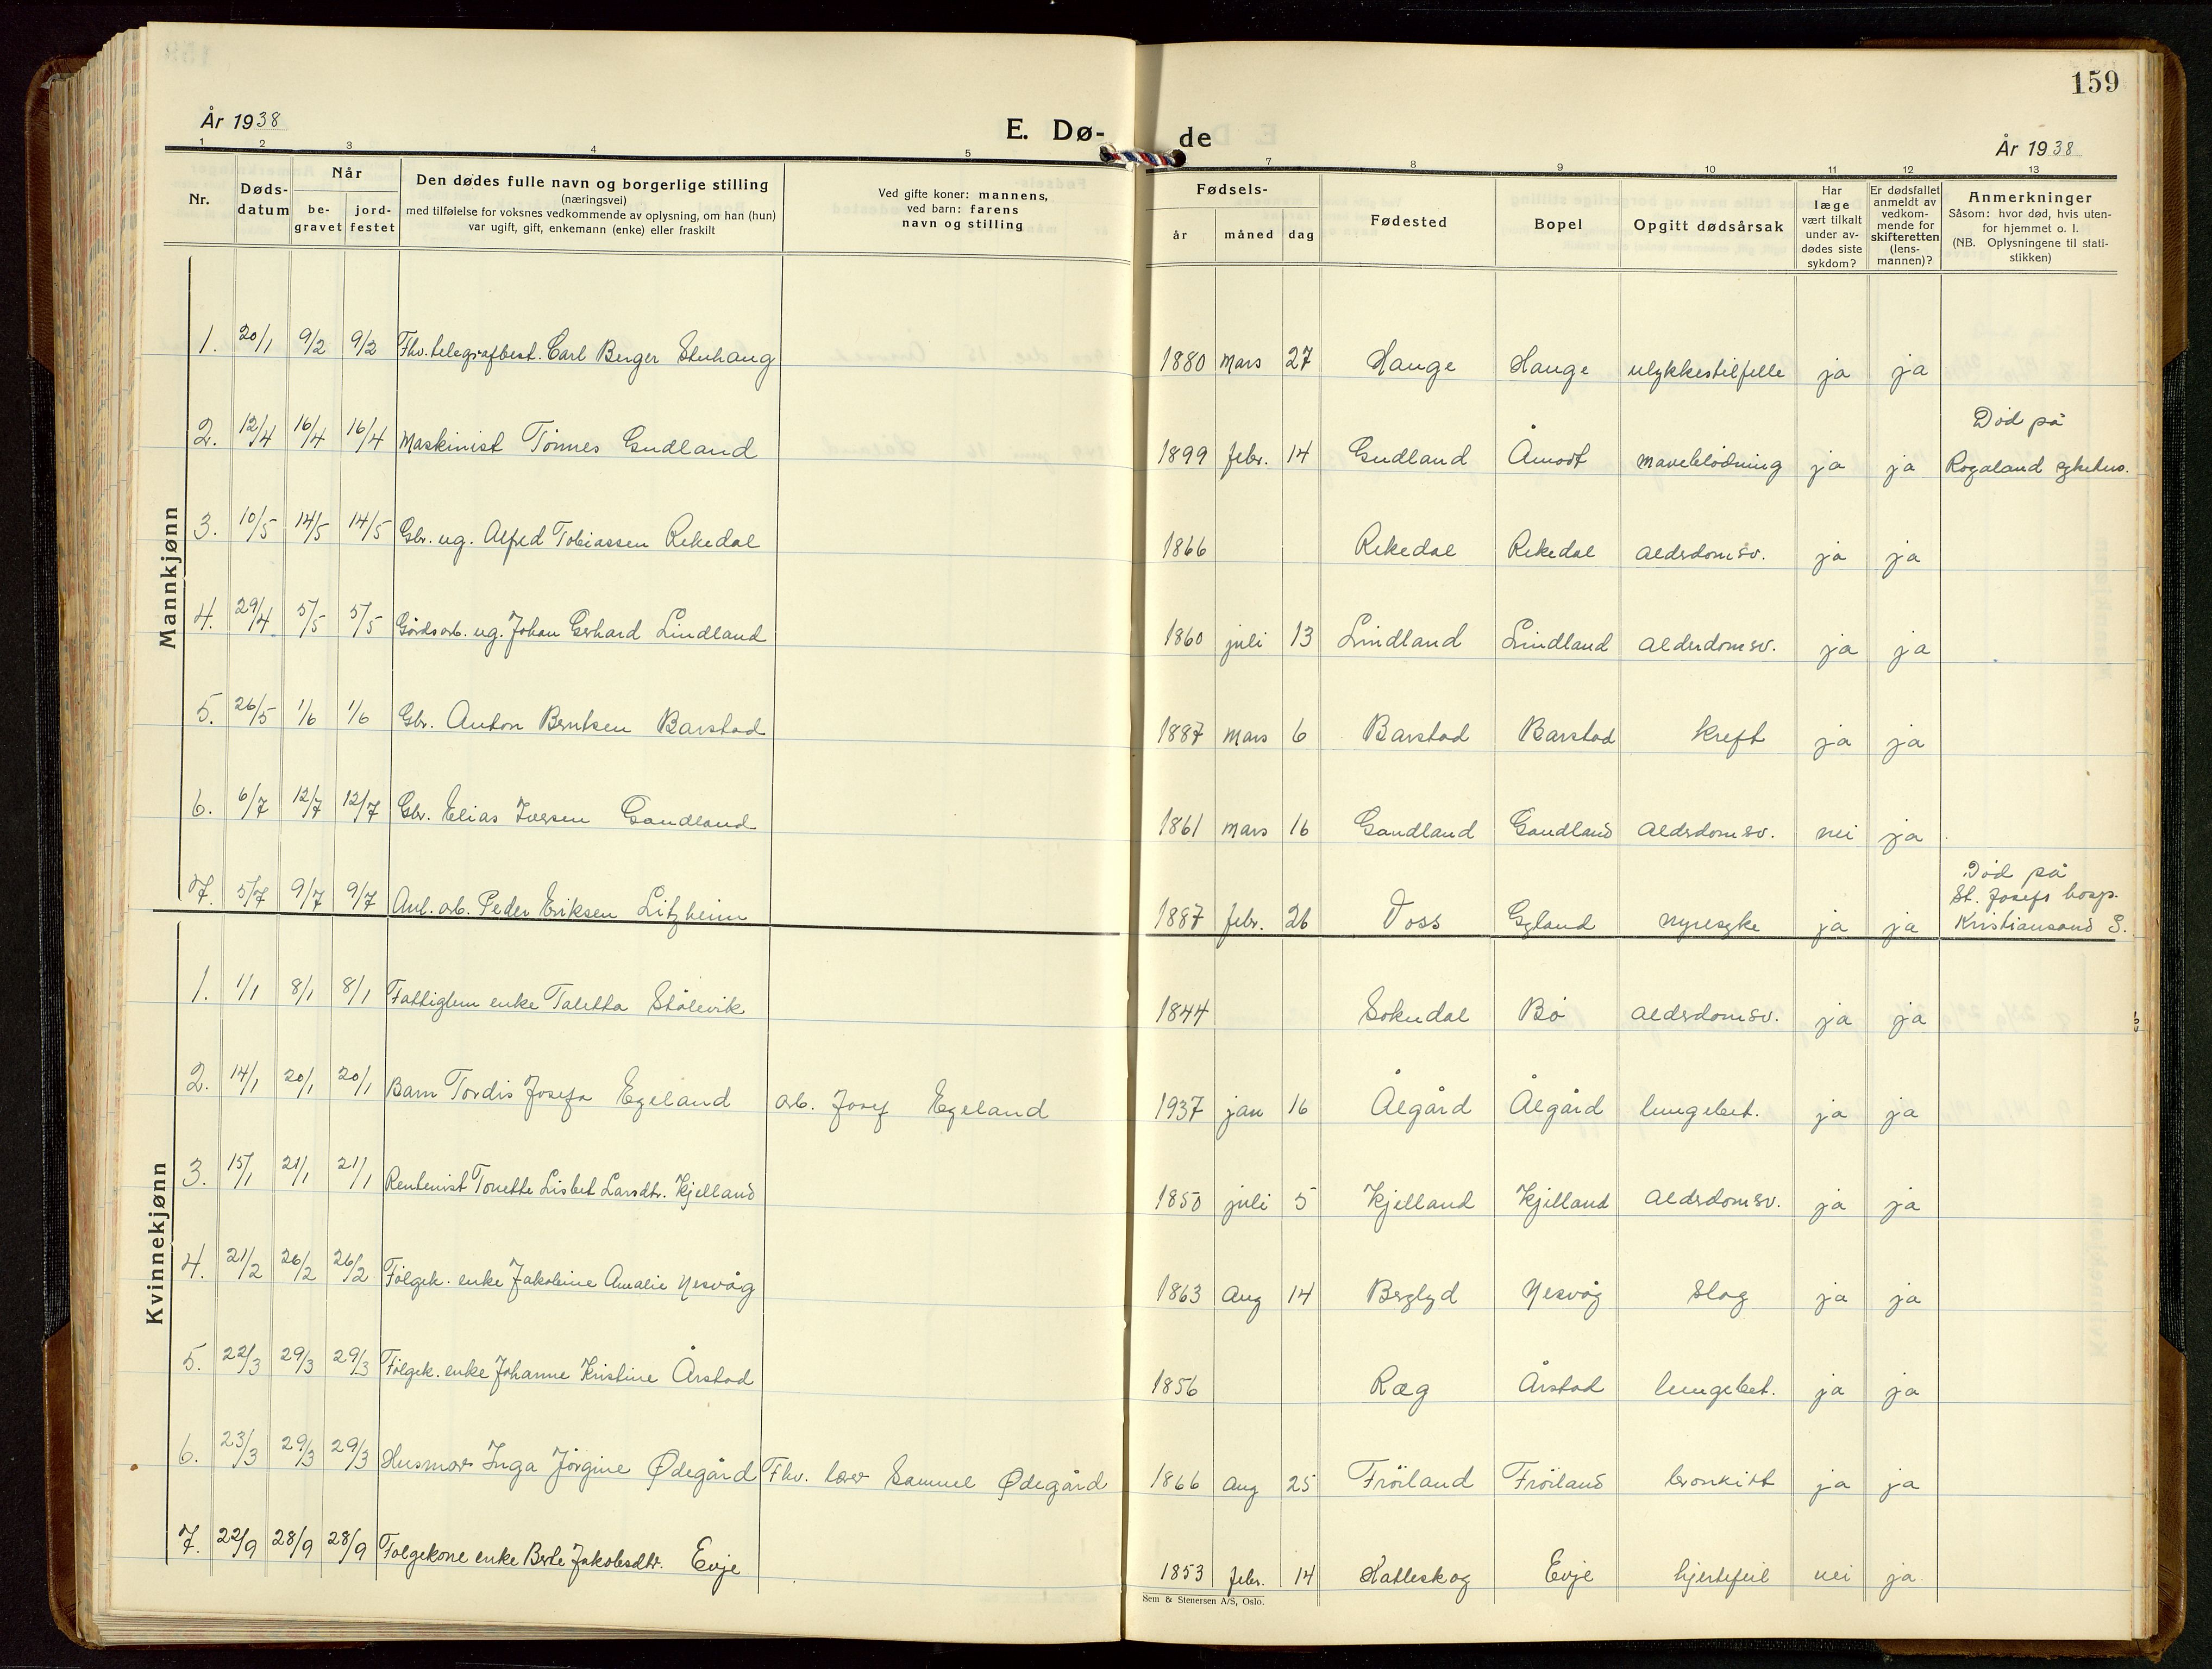 159
År 1938
E. Dø-
de
År 1938
1 2 3 4 5 7 8 9 10 11 12 13
Nr.
Døds-
datum
Når
be-
gravet
jord-
festet
Den dødes fulle navn og borgerlige stilling
(næringsvei)
med tilføielse for voksnes vedkommende av oplysning, om han (hun)
var ugift, gift, enkemann (enke) eller fraskilt
Ved gifte koner: mannens,
ved barn: farens
navn og stilling
Fødsels-
år måned dag
Fødested
Bopel
Opgitt dødsårsak
Har
læge
vært tilkalt
under av-
dødes siste
sykdom?
Er dødsfallet
anmeldt av
vedkom-
mende for
skifteretten
(lens-
mannen)?
Anmerkninger
Såsom: hvor død, hvis uten-
for hjemmet o. l.
(NB. Oplysningene til stati-
stikken)
Mannkjønn
1. 20/1 9/2 9/2 Fhv. telegrafbest. Carl Berger Stenhaug 1880 mars 27 Hauge Hauge ulykkestilfelle ja ja
Død på
2. 12/4 16/4 16/4 Maskinist Tönnes Gudland 1899 febr. 14 Gudland Åmodt maveblödning ja ja Rogaland sykehus.
3. 10/5 14/5 14/5 Gbr. ug. Alfred Tobiassen Rekedal 1866 Rekedal Rekedal alderdomsv. ja ja
4. 29/4 5/5 5/5 Gårdsarb. ug. Johan Gerhard Lindland 1860 juli 13 Lindland Lindland alderdomsv. ja ja
5. 26/5 1/6 1/6 Gbr. Anton Berntsen Barstad 1887 mars 6 Barstad Barstad kreft ja ja
6. 6/7 12/7 12/7 Gbr. Elias Iversen Gandland 1861 mars 16 Gandland Gandland alderdomsv. nei ja
Död på
St. Josefs hosp.
7. 5/7 9/7 9/7 Anl. arb. Peder Eriksen Litzheim 1887 febr. 26 Voss Gyland nyresyke ja ja Kristiansand S.
Kvinnekjønn
1. 1/1 8/1 8/1 Fattiglem enke Taletta Stålevik 1844 Sokndal Bö alderdomsv. ja ja
2. 14/1 20/1 20/1 Barn Tordis Josefa Egeland arb. Josef Egeland 1937 jan 16 Ålgård Ålgård lungebet. ja ja
3. 15/1 21/1 21/1 Rentenist Tonette Lisbet Larsdtr. Kjelland 1850 juli 5 Kjelland Kjelland alderdomsv. ja ja
4. 21/2 26/2 26/2 Fölgek. enke Jakobine Amalie Nesvåg 1863 Aug 14 Berglyd Nesvåg slag ja ja
5. 22/3 29/3 29/3 Fölgek. enke Johanne Kristine Årstad 1856 Ræg Årstad lungebet. ja ja
6. 23/3 29/3 29/3 Husmor Inga Jörgine Ødegård Fhv. lærer Samuel Ødegård 1866 Aug 25 Fröiland Fröiland bronkitt ja ja
7. 22/9 28/9 28/9 Folgekone enke Berte Jakobsdtr. Evje 1853 febr. 14 Hatleskog Evje hjertefeil nei ja
Sem & Stenersen A/S, Oslo.